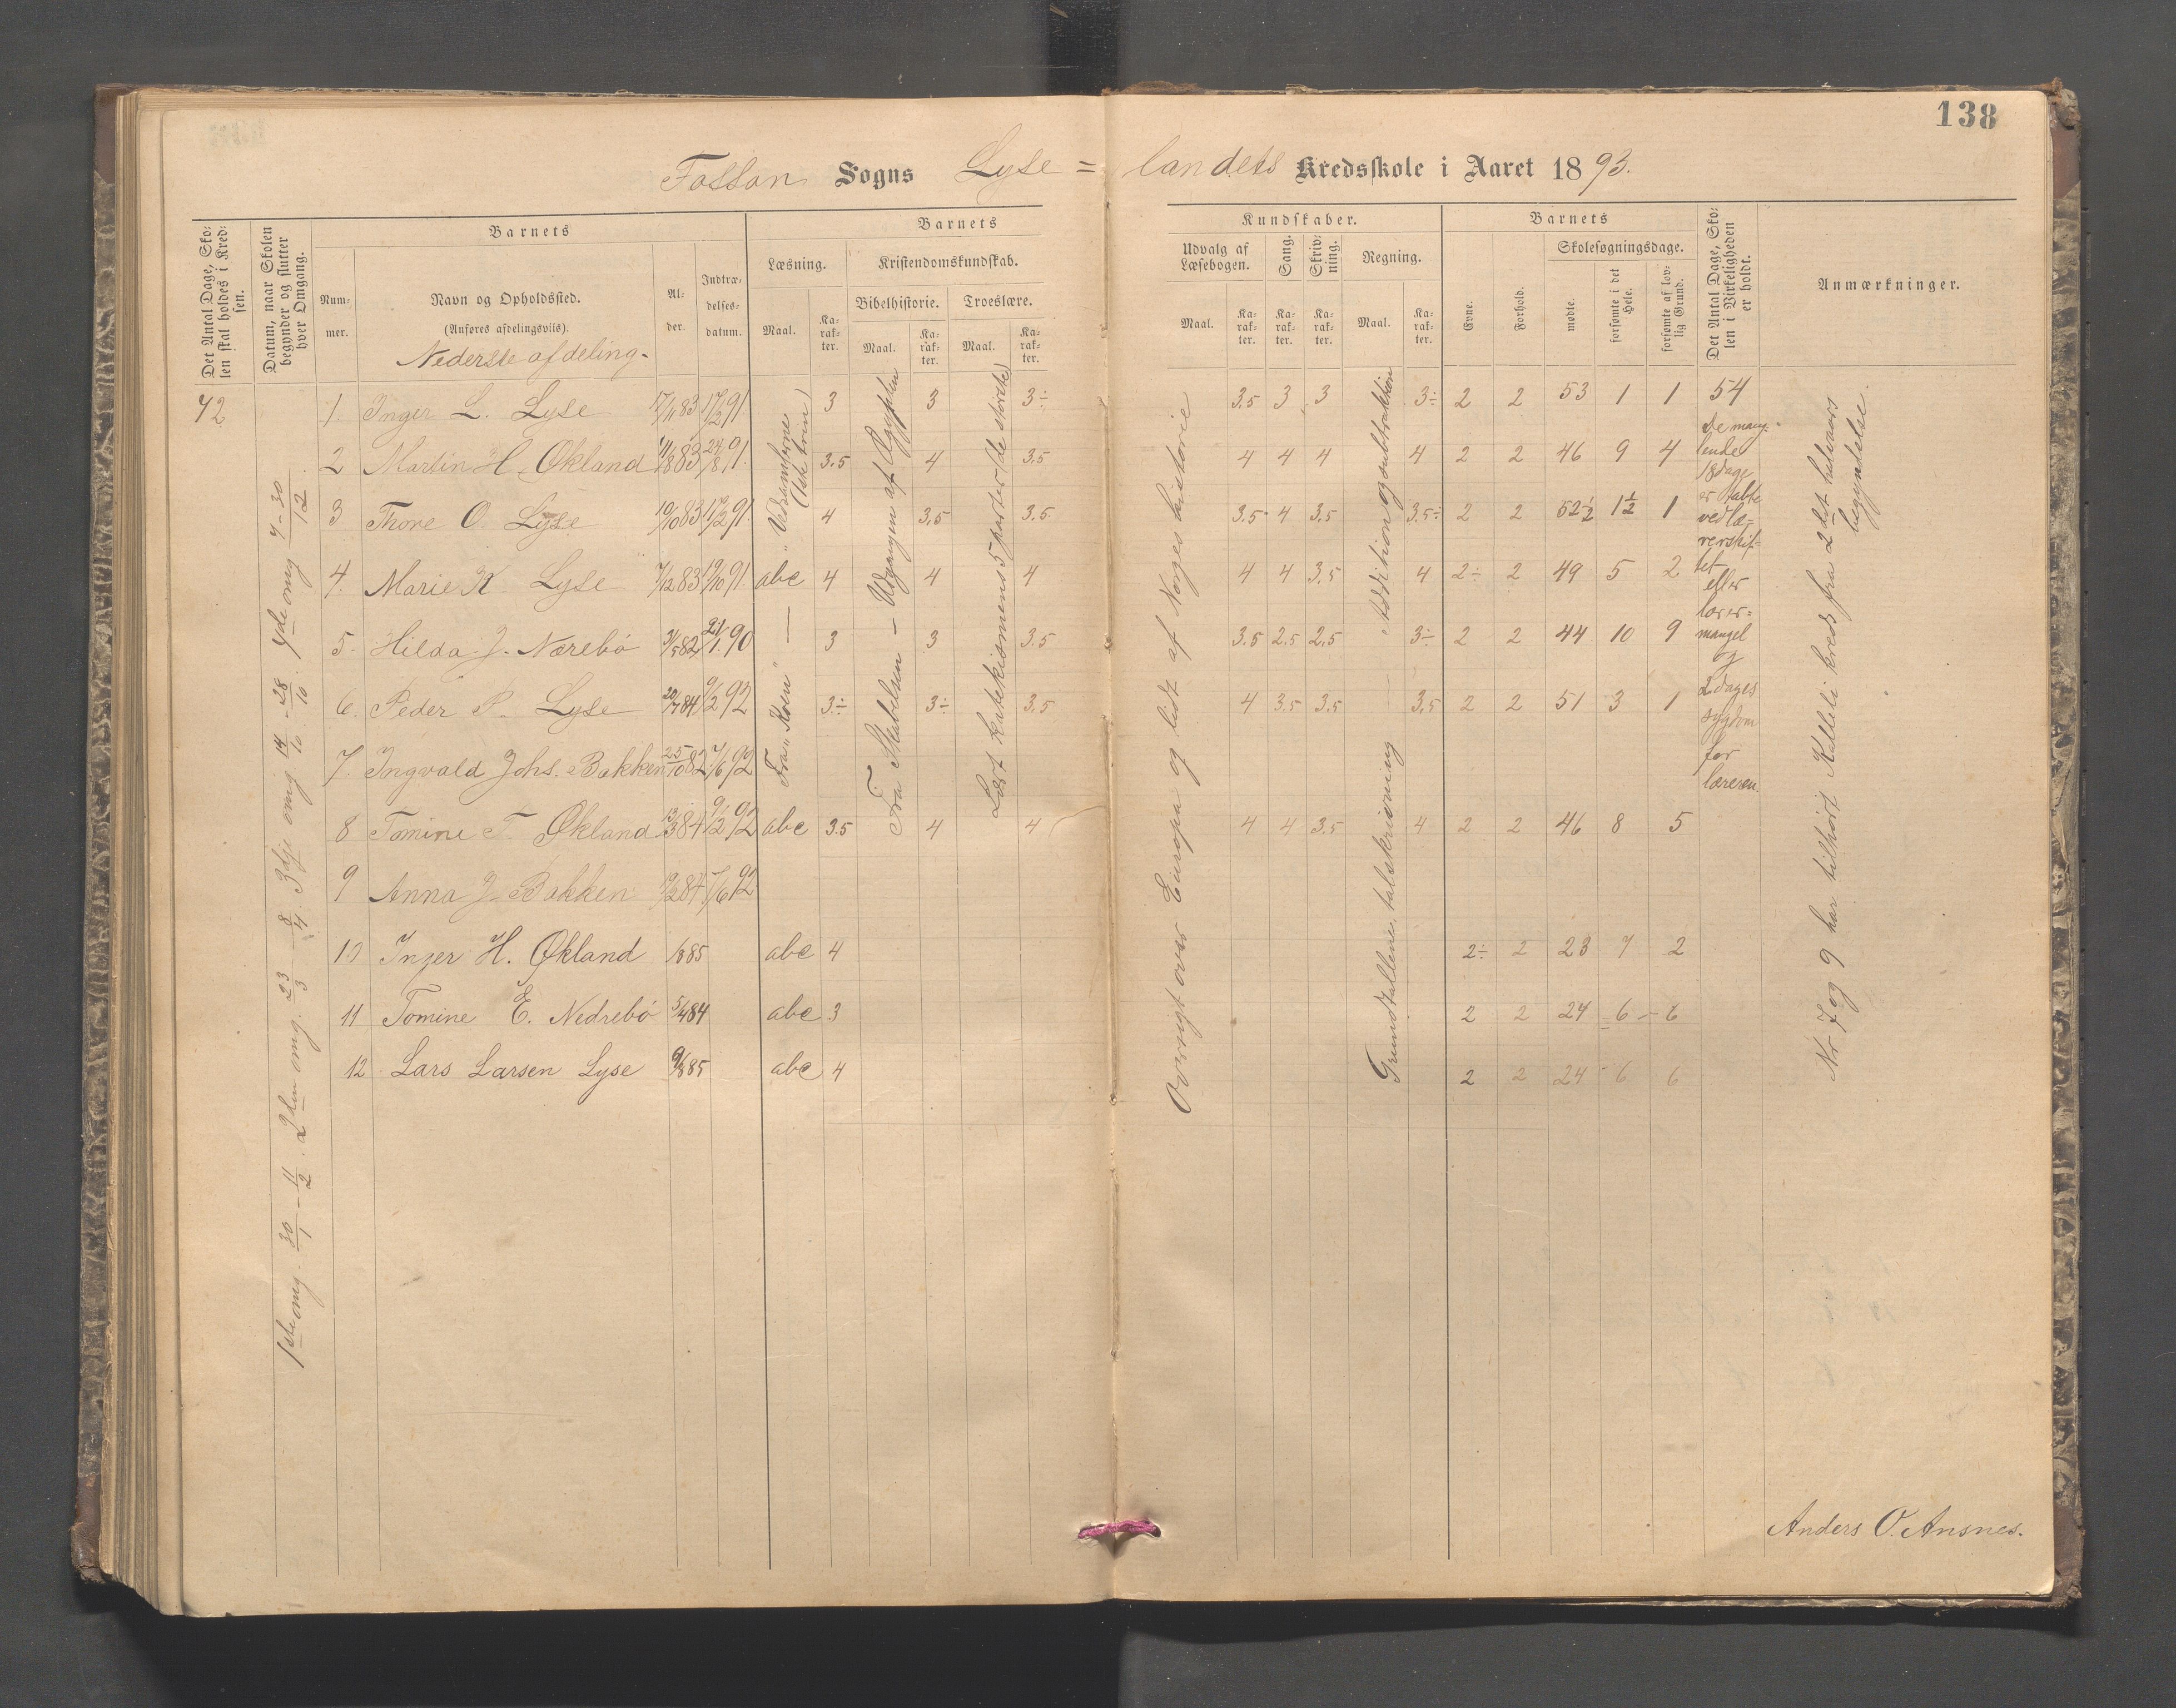 138
Fossan Sogns Lyse=landets Kredsskole i Aaret 1893.
Det Antal Dage, Skolen skal holdes i Kredsen.
Datum, naar Skolen begynder og slutter hver Omgang.
Barnets
Nummer.
Navn og Opholdssted.
(Anføres afdelingsviis).
Nederste afdeling.
Alder.
Indtrædelsesdatum.
Barnets
Læsning.
Maal.
Karakter.
Kristendomskundskab.
Bibelhistorie.
Maal.
Karakter.
Troeslære.
Maal.
Karakter.
Kundskaber.
Udvalg af Læsebogen.
Maal.
Karakter.
Sang.
Karakter.
Skrivning.
Karakter.
Regning.
Maal.
Karakter.
Barnets
Evne.
Forhold.
Skolesøgningsdage.
mødte.
forsømte i det Hele.
forsømte af lovlig Grund.
Det Antal Dage, Skolen i Virkeligheden er holdt.
Anmærkninger.
72
1ste omg. 30/1 - 11/2. 2den omg. 23/3 - 8/4. 3dje omg. 14/10 - 28/10. 4de omg 7-30/12.
1. Inger L. Lyse 17/11 83 17/2 91. 3 3 3÷ 3.5 3 3 3÷ 2 2 53 1 1 54
2 Martin H. Økland 11/8 83 24/8 91. 3.5 4 3.5 4 4 4 4 2 2 46 9 4
3 Thore O. Lyse 19/10 83 17/2 91. 4 3.5 3.5 3.5 4 3.5 3.5÷ 2 2 52½ 1½ 1
4. Marie K. Lyse 7/12 83 19/10 91 abc 4 4 4 4 4 3.5 4 2÷ 2 49 5 2
5. Hilda J. Nærebø 31/5 82 21/1 90 3 3 3.5 3.5 2.5 2.5 3÷ 2 2 44 10 9
6. Peder P. Lyse 20/7 84 9/2 92 3÷ 3÷ 3.5 4 3.5 3.5 3.5 2 2 51 3 1
7. Ingvald Johs. Bakken 25/10 82 7/6 92
8 Tomine T. Økland 13/3 84 9/2 92 abc 3.5 4 4 4 4 3.5 4 2 2 46 8 5
9 Anna J. Bakken 19/2 84 7/6 92
10 Inger H. Økland /8 85 abc 4 2÷ 2 23 7 2
11 Tomine E. Nedrebø 5/4 84 abc 3 2 2 24 6 6
12 Lars Larsen Lyse 9/8 85 abc 4 2 2 24 6 6
Fra „Koen" — „Vedsankerne (1ste trin)
Fra Skabelsen — Udgangen af Ægypten
Lært katekismens 5 parter (de største)
Oversigt over Europa og lidt af Norges historie
Grundtallene, talskrivning — Addition og subtraktion
De manglende 18 dage er tabt ved lærerskiftet eller lærermangel og 2 dages sygdom for læreren.
Nr 7 og 9 har tilhørt Kalleli kreds fra 2det halvaars begyndelse.
Anders O. Ansnes.